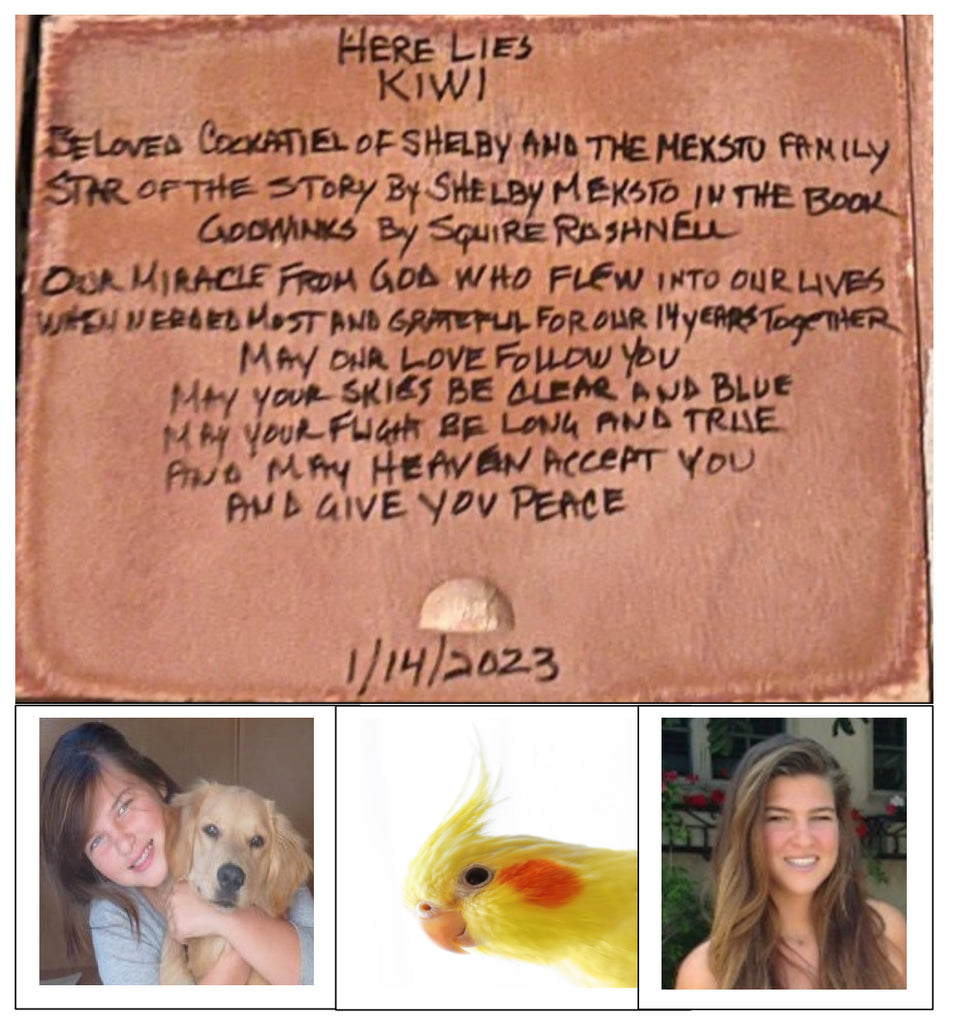 HERE LIES
KIWI
BELOVED COCKATIEL OF SHELBY AND THE MEKSTO FAMILY
STAR OF THE STORY BY SHELBY MEKSTO IN THE BOOK
GODWINKS BY SQUIRE RUSHNELL
OUR MIRACLE FROM GOD WHO FLEW INTO OUR LIVES
WHEN NEEDED MOST AND GRATEFUL FOR OUR 14 YEARS TOGETHER
MAY OUR LOVE FOLLOW YOU
MAY YOUR SKIES BE CLEAR AND BLUE
MAY YOUR FLIGHT BE LONG AND TRUE
AND MAY HEAVEN ACCEPT YOU
AND GIVE YOU PEACE
1/14/2023